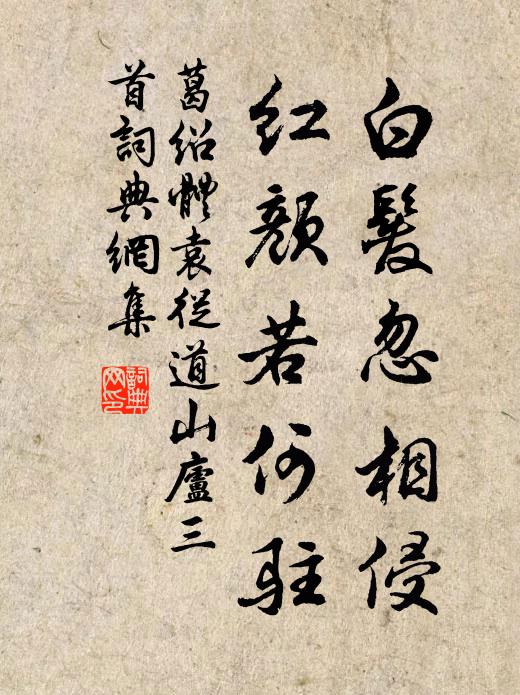 白髮忽相侵
紅顏若何駐
葛紹體袁從道山廬三
首詞典網集
詞典
網印